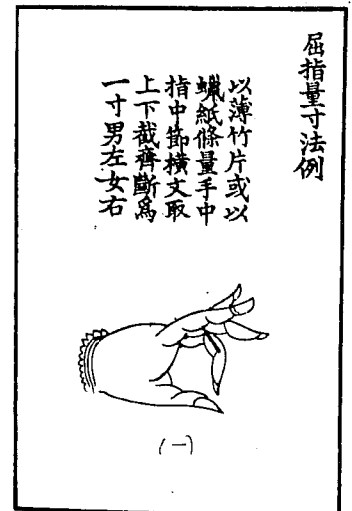 屈指量寸法例
以薄竹片或以
蠟紙條量手中
指中節橫文取
上下截齊斷爲
一寸男左女右
(一)